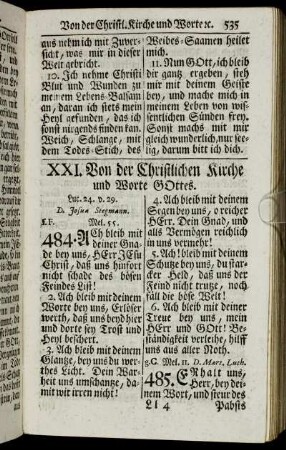 Von der Christl. Kirche und Worte ꝛc. 535
aus nehm ich mit Zuver-
sicht, was mir in dieser
Welt gebricht.
10. Ich nehme Christi
Blut und Wunden zu
meinem Lebens-Balsam
an, daran ich stets mein
Heyl gefunden, das ich
sonst nirgends finden kan.
Weich, Schlange, mit
dem Todes-Stich, des
Weibes-Saamen heilet
mich.
11. Nun GOtt, ich bleib
dir gantz ergeben, steh
mir mit deinem Geiste
bey, und mache mich in
meinem Leben von wis-
sentlichen Sünden frey.
Sonst machs mit mir
gleich wunderlich, nur see-
lig, darum bitt ich dich.
XXI. Von der Christlichen Kirche
und Worte GOttes.
Luc. 24. v. 29.
D. Josua Stegmann.
Mel. 55.
484. Ach bleib mit
deiner Gna-
de bey uns, HErr JEsu
Christ, daß uns hinfort
nicht schade des bösen
Feindes List!
2. Ach bleib mit deinem
Worte bey uns, Erlöser
werth, daß uns beyd hier
und dorte sey Trost und
Heyl beschert.
3. Ach bleib mit deinem
Glantze, bey uns du wer-
thes Licht. Dein War-
heit uns umschantze, da-
mit wir irren nicht!
4. Ach bleib mit deinem
Segen bey uns, o reicher
HErr. Dein Gnad, und
alls Vermögen reichlich
in uns vermehr!
5. Ach! bleib mit deinem
Schutze bey uns, du star-
cker Held, daß uns der
Feind nicht trutze, noch
fäll die böse Welt!
6. Ach bleib mit deiner
Treue bey uns, mein
HErr und GOtt! Be-
ständigkeit verleihe, hilff
uns aus aller Noth.
g.C. Mel. 11. D. Mart. Luth.
485. ERhalt uns,
Herr, bey dei-
nem Wort, und steur des
Ll 4 Pabsts